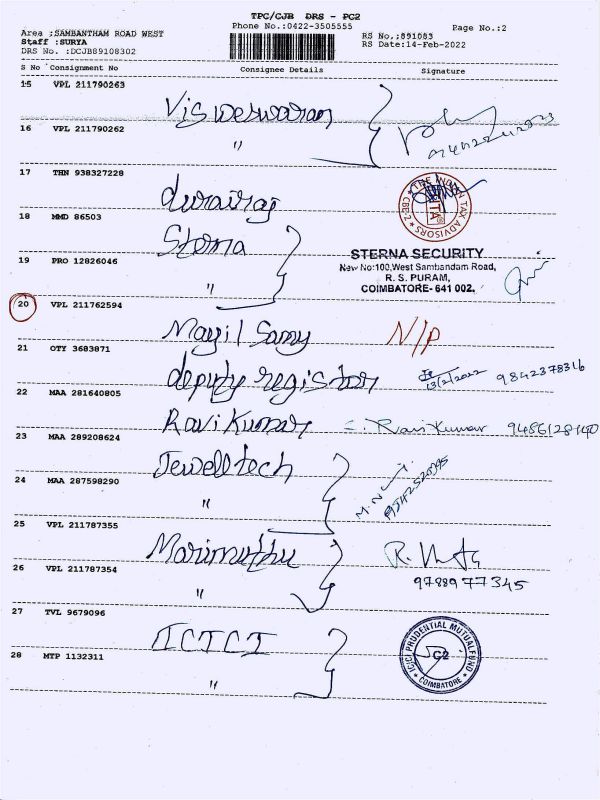 TPC/CJB DRS - PC2
Phone No.:0422-3505555
Page No.:2
Area :SAMBANTHAM ROAD WEST
Staff :SURYA
DRS No. :DCJB89108302
RS No.:891083
RS Date:14-Feb-2022
S No Consignment No Consignee Details Signature
15 VPL 211790263
Visweswaran
16 VPL 211790262
"
17 THN 938327228
durairaj
THE INDIAN TAX ADVISORS
CBE-2
18 MMD 86503
Sterna
STERNA SECURITY
New No:100,West Sambandam Road,
R. S. PURAM,
COIMBATORE- 641 002.
19 PRO 12826046
"
20 VPL 211762594
Mayil Samy N/P
21 OTY 3683871
deputy registor 13/2/2022 9842378316
22 MAA 281640805
Ravi Kumar Ravi Kumar 9486128140
23 MAA 289208624
Jewell tech
24 MAA 287598290
"
25 VPL 211787355
Marimuthu
26 VPL 211787354
"
9788977345
27 TVL 9679096
ICICI
ICICI PRUDENTIAL MUTUAL FUND
C2
COIMBATORE
28 MTP 1132311
"